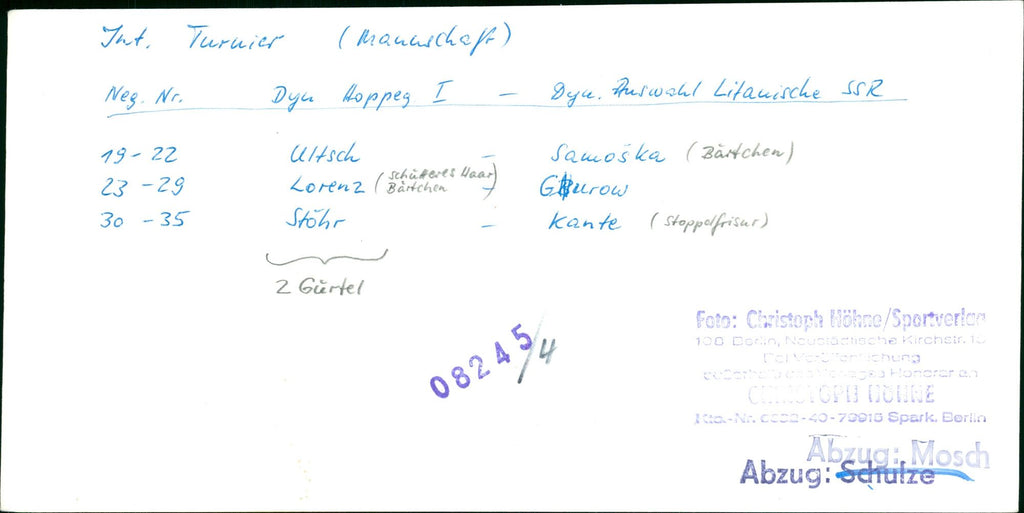 Int. Turnier (Mannschaft)
Neg. Nr. Dyn Hoppeg I – Dyn. Auswahl Litauische SSR
19 - 22 Ultsch – Samoška (Bärtchen)
23 - 29 Lorenz (schütteres Haar Bärtchen) – Gurow
30 - 35 Stöhr – Kante (Stoppelfrisur)
2 Gürtel
08245/4
Foto: Christoph Höhne/Sportverlag
108 Berlin, Neustädtische Kirchstr. 15
Bei Veröffentlichung
Honorar an
CHRISTOPH HÖHNE
Kto.-Nr. Spark. Berlin
Abzug: Mosch
Abzug: Schulze